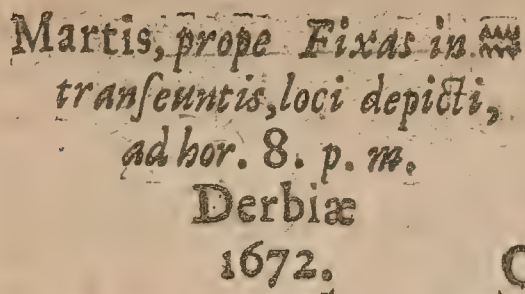 Martis, prope Fixas in ♒
tranſeuntis, loci depicti,
ad hor. 8. p. m.
Derbiæ
1672.